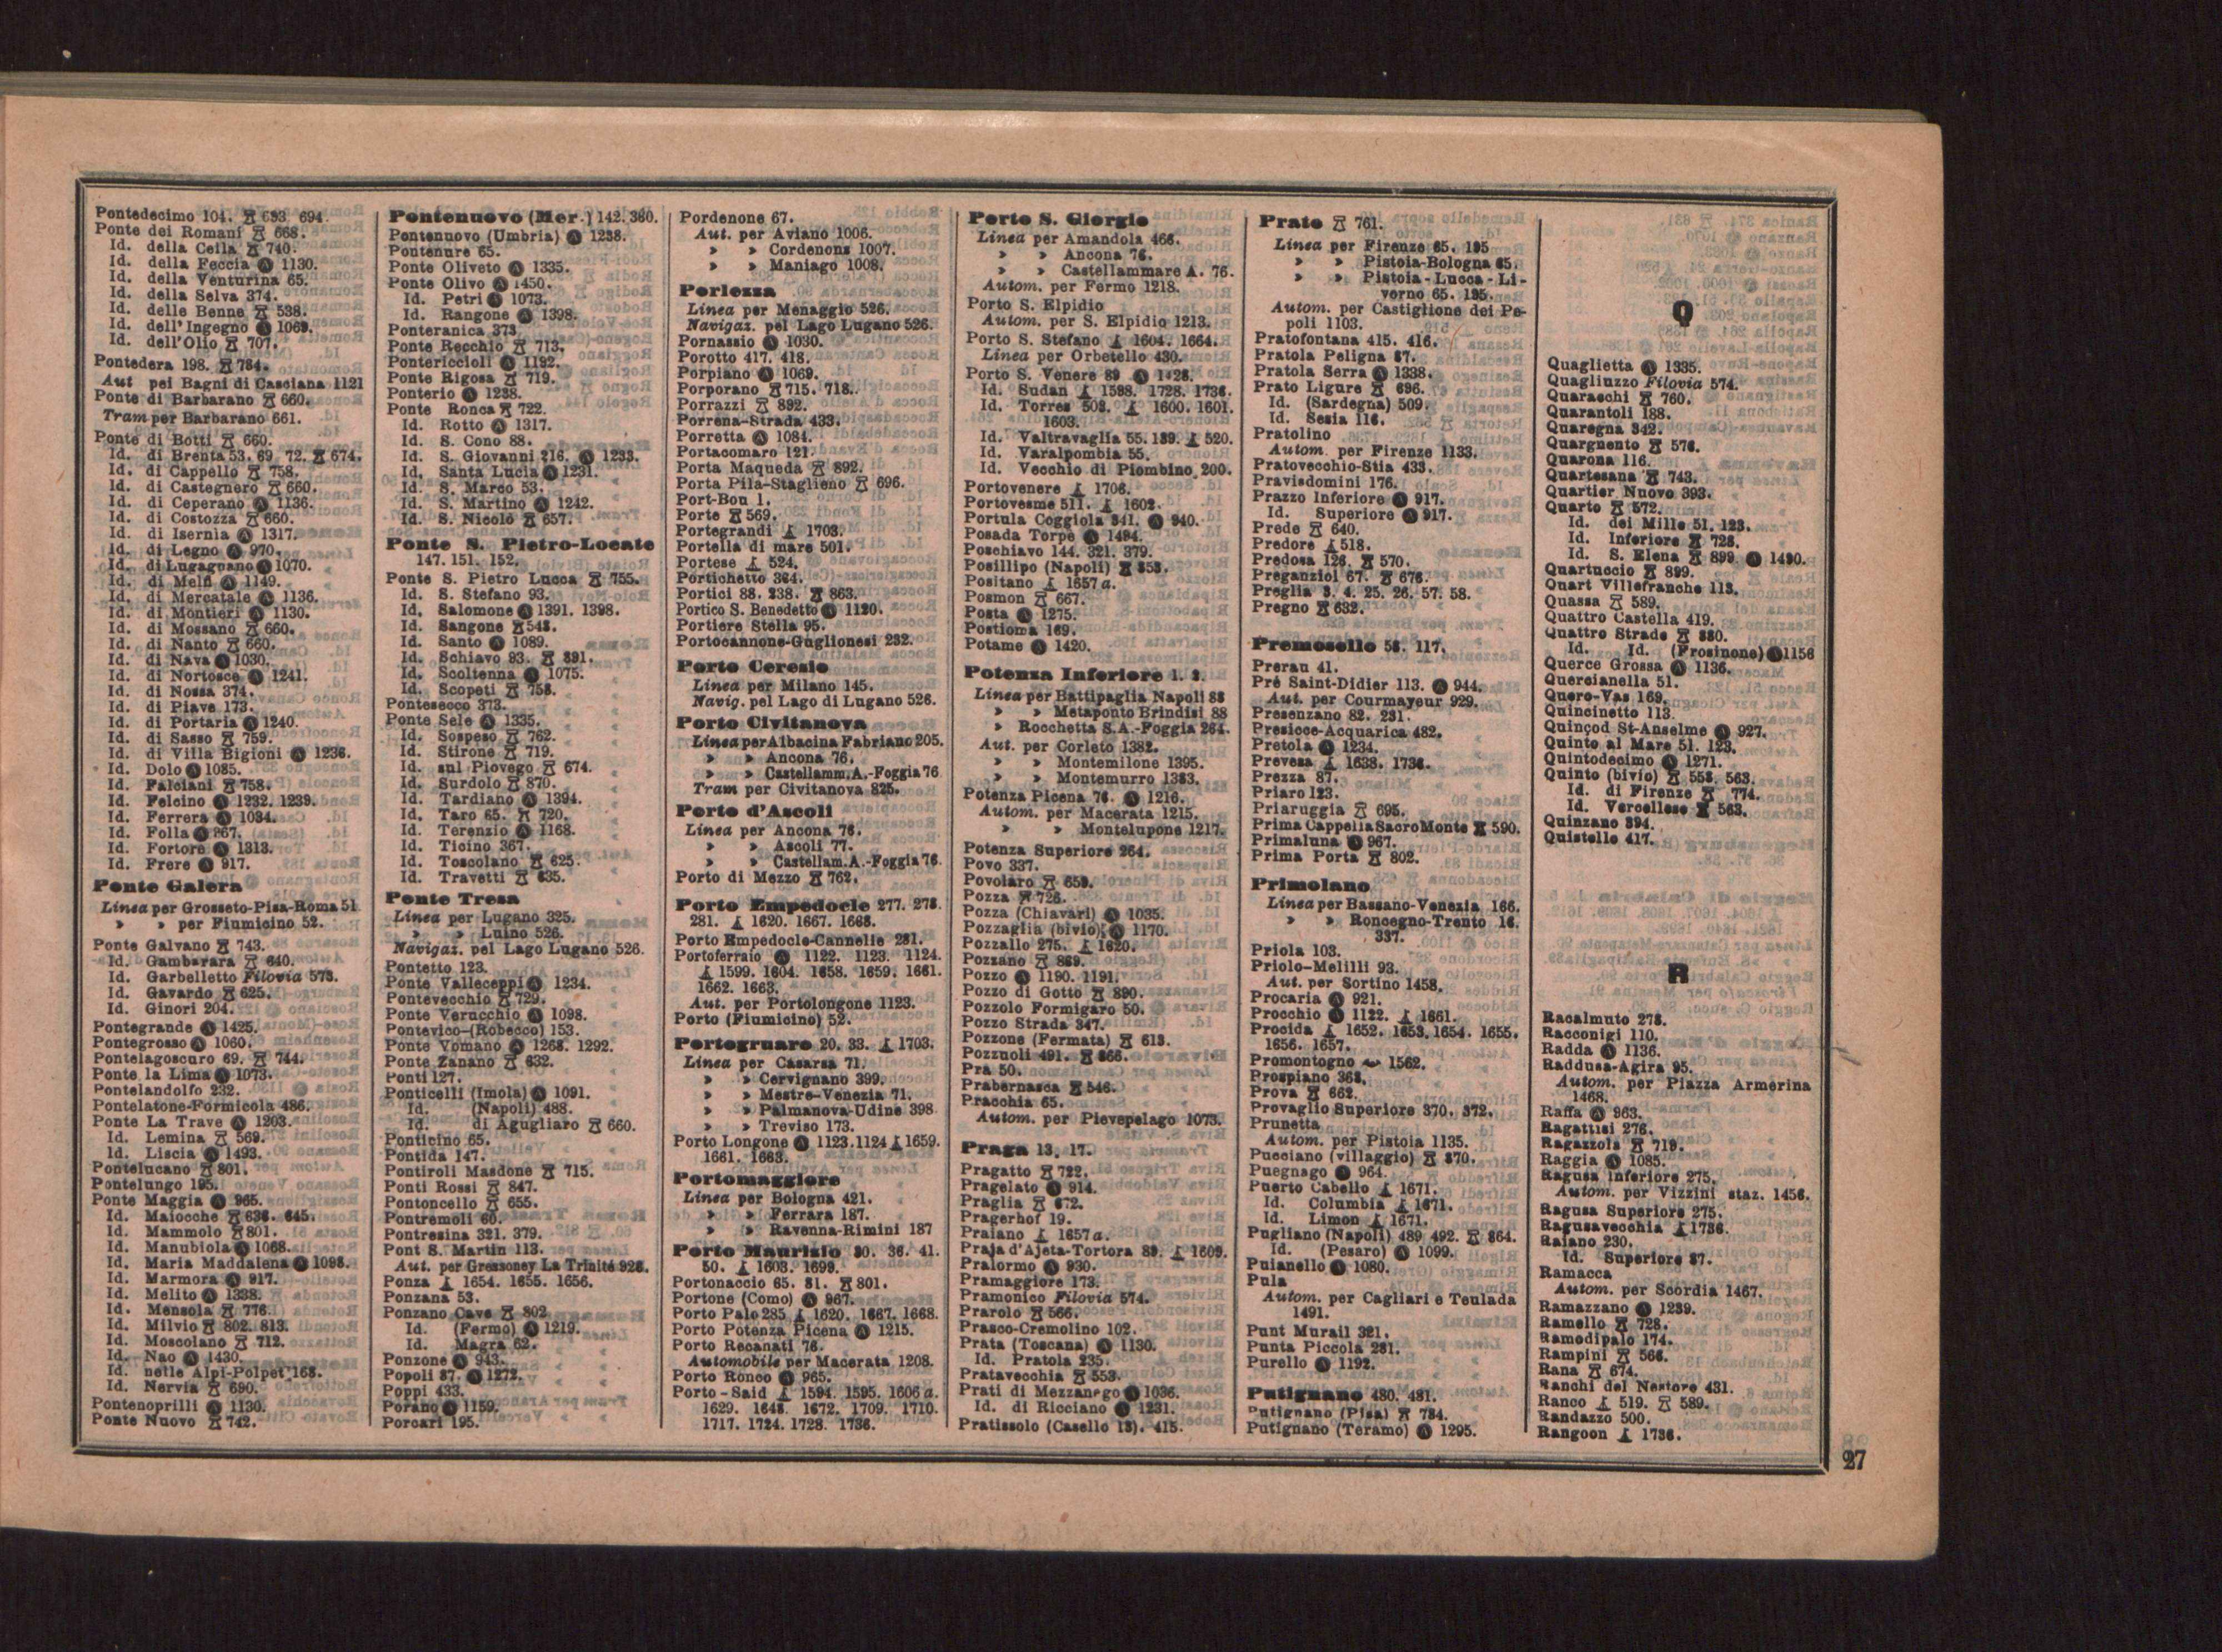 Pontedecimo 104. 693 694.
Ponte dei Romani 668.
Id. della Ceila 740.
Id. della Feccia 1130.
Id. della Venturina 65.
Id. della Selva 374.
Id. delle Benne 538.
Id. dell'Ingegno 1069.
Id. dell'Olio 707.
Pontedera 198. 784.
Aut pei Bagni di Casciana 1121
Ponte di Barbarano 660.
Tram per Barbarano 661.
Ponte di Botti 660.
Id. di Brenta 53. 69 72. 674.
Id. di Cappello 758.
Id. di Castegnero 660.
Id. di Ceperano 1136.
Id. di Costozza 660.
Id. di Isernia 1317.
Id. di Legno 970.
Id. di Lugagnano 1070.
Id. di Melfi 1149.
Id. di Mercatale 1136.
Id. di Montieri 1130.
Id. di Mossano 660.
Id. di Nanto 660.
Id. di Nava 1030.
Id. di Nortosce 1241.
Id. di Nossa 374.
Id. di Piave 173.
Id. di Portaria 1240.
Id. di Sasso 759.
Id. di Villa Bigioni 1236.
Id. Dolo 1085.
Id. Falciani 758.
Id. Felcino 1232. 1239.
Id. Ferrera 1034.
Id. Folla 967.
Id. Fortore 1313.
Id. Frere 917.
Ponte Galera
Linea per Grosseto-Pisa-Roma 51
» » per Fiumicino 52.
Ponte Galvano 743.
Id. Gambarara 640.
Id. Garbelletto Filovia 573.
Id. Gavardo 625.
Id. Ginori 204.
Pontegrande 1425.
Pontegrosso 1060.
Pontelagoscuro 69. 744.
Ponte la Lima 1073.
Pontelandolfo 232.
Pontelatone-Formicola 486.
Ponte La Trave 1203.
Id. Lemina 569.
Id. Liscia 1493.
Pontelucano 801.
Pontelungo 195.
Ponte Maggia 965.
Id. Maiocche 636. 645.
Id. Mammolo 801.
Id. Manubiola 1068.
Id. Maria Maddalena 1098.
Id. Marmora 917.
Id. Melito 1338.
Id. Mensola 776.
Id. Milvio 802. 813.
Id. Moscolano 712.
Id. Nao 1430.
Id. nelle Alpi-Polpet 168.
Id. Nervia 690.
Pontenoprilli 1130.
Ponte Nuovo 742.
Pontenuovo (Mer.) 142. 380.
Pontenuovo (Umbria) 1238.
Pontenure 65.
Ponte Oliveto 1335.
Ponte Olivo 1450.
Id. Petri 1073.
Id. Rangone 1398.
Ponteranica 373.
Ponte Recchio 713.
Pontericcioli 1192.
Ponte Rigosa 719.
Ponterio 1238.
Ponte Ronca 722.
Id. Rotto 1317.
Id. S. Cono 88.
Id. S. Giovanni 216. 1233.
Id. Santa Lucia 1231.
Id. S. Marco 53.
Id. S. Martino 1242.
Id. S. Nicolò 657.
Ponte S. Pietro-Locate
147. 151. 152.
Ponte S. Pietro Lucca 755.
Id. S. Stefano 93.
Id. Salomone 1391. 1398.
Id. Sangone 548.
Id. Santo 1089.
Id. Schiavo 93. 891.
Id. Scoltenna 1075.
Id. Scopeti 758.
Pontesecco 373.
Ponte Sele 1335.
Id. Sospeso 762.
Id. Stirone 719.
Id. sul Piovego 674.
Id. Surdolo 870.
Id. Tardiano 1394.
Id. Taro 65. 720.
Id. Terenzio 1168.
Id. Ticino 367.
Id. Toscolano 625.
Id. Travetti 635.
Ponte Tresa
Linea per Lugano 325.
» » Luino 526.
Navigaz. pel Lago Lugano 526.
Pontetto 123.
Ponte Valleceppi 1234.
Pontevecchio 729.
Ponte Verucchio 1098.
Pontevico-(Robecco) 153.
Ponte Vomano 1268. 1292.
Ponte Zanano 632.
Ponti 127.
Ponticelli (Imola) 1091.
Id. (Napoli) 488.
Id. di Agugliaro 660.
Ponticino 65.
Pontida 147.
Pontiroli Masdone 715.
Ponti Rossi 847.
Pontoncello 655.
Pontremoli 60.
Pontresina 321. 379.
Pont S. Martin 113.
Aut. per Gressoney La Trinité 928.
Ponza 1654. 1655. 1656.
Ponzana 53.
Ponzano Cave 802
Id. (Fermo) 1219.
Id. Magra 62.
Ponzone 943.
Popoli 87. 1272.
Poppi 433.
Porano 1159.
Porcari 195.
Pordenone 67.
Aut. per Aviano 1006.
» » Cordenons 1007.
» » Maniago 1008.
Porlezza
Linea per Menaggio 526.
Navigaz. pel Lago Lugano 526.
Pornassio 1030.
Porotto 417. 418.
Porpiano 1069.
Porporano 715. 718.
Porrazzi 892.
Porrena-Strada 433.
Porretta 1084.
Portacomaro 121.
Porta Maqueda 892.
Porta Pila-Staglieno 696.
Port-Bou 1.
Porte 569.
Portegrandi 1703.
Portella di mare 501.
Portese 524.
Portichetto 364.
Portici 88. 238. 863.
Portico S. Benedetto 1120.
Portiere Stella 95.
Portocannone-Guglionesi 232.
Porto Ceresio
Linea per Milano 145.
Navig. pel Lago di Lugano 526.
Porto Civitanova
Linea per Albacina Fabriano 205.
» » Ancona 76.
» » Castellamm.A.-Foggia 76
Tram per Civitanova 825.
Porto d'Ascoli
Linea per Ancona 76.
» » Ascoli 77.
» » Castellam.A.-Foggia 76.
Porto di Mezzo 762.
Porto Empedocle 277. 278.
281. 1620. 1667. 1668.
Porto Empedocle-Cannelle 281.
Portoferraio 1122. 1123. 1124.
1599. 1604. 1658. 1659. 1661.
1662. 1663.
Aut. per Portolongone 1123.
Porto (Fiumicino) 52.
Portogruaro 20. 33. 1703.
Linea per Casarsa 71.
» » Cervignano 399.
» » Mestre-Venezia 71.
» » Palmanova-Udine 398
» » Treviso 173.
Porto Longone 1123.1124 1659.
1661. 1663.
Portomaggiore
Linea per Bologna 421.
» » Ferrara 187.
» » Ravenna-Rimini 187
Porto Maurizio 30. 36. 41.
50. 1603. 1699.
Portonaccio 65. 81. 801.
Portone (Como) 967.
Porto Palo 285 1620. 1667. 1668.
Porto Potenza Picena 1215.
Porto Recanati 76.
Automobile per Macerata 1208.
Porto Ronco 965.
Porto-Said 1594. 1595. 1606 a.
1629. 1648. 1672. 1709. 1710.
1717. 1724. 1728. 1736.
Porto S. Giorgio
Linea per Amandola 466.
» » Ancona 76.
» » Castellammare A. 76.
Autom. per Fermo 1218.
Porto S. Elpidio
Autom. per S. Elpidio 1213.
Porto S. Stefano 1604. 1664.
Linea per Orbetello 430.
Porto S. Venere 89 1428.
Id. Sudan 1598. 1728. 1736.
Id. Torres 508. 1600. 1601.
1603.
Id. Valtravaglia 55. 139. 520.
Id. Varalpombia 55.
Id. Vecchio di Piombino 200.
Portovenere 1706.
Portovesme 511. 1602.
Portula Coggiola 341. 940.
Posada Torpè 1494.
Poschiavo 144. 321. 379.
Posillipo (Napoli) 858.
Positano 1657 a.
Posmon 667.
Posta 1275.
Postioma 169.
Potame 1420.
Potenza Inferiore 1. 3.
Linea per Battipaglia Napoli 88
» » Metaponto Brindisi 88
» » Rocchetta S.A.-Foggia 264.
Aut. per Corleto 1382.
» » Montemilone 1395.
» » Montemurro 1383.
Potenza Picena 76. 1216.
Autom. per Macerata 1215.
» » Montelupone 1217.
Potenza Superiore 264.
Povo 337.
Povolaro 659.
Pozza 726.
Pozza (Chiavari) 1035.
Pozzaglia (bivio) 1170.
Pozzallo 275. 1620.
Pozzano 869.
Pozzo 1190. 1191.
Pozzo di Gotto 890.
Pozzolo Formigaro 50.
Pozzo Strada 347.
Pozzone (Fermata) 613.
Pozzuoli 491. 866.
Prà 50.
Prabernasca 546.
Pracchia 65.
Autom. per Pievepelago 1073.
Praga 13. 17.
Pragatto 722.
Pragelato 914.
Praglia 672.
Pragerhof 19.
Praiano 1657 a.
Praja d'Ajeta-Tortora 89. 1609.
Pralormo 930.
Pramaggiore 173.
Pramonico Filovia 574.
Prarolo 566.
Prasco-Cremolino 102.
Prata (Toscana) 1130.
Id. Pratola 235.
Pratavecchia 553.
Prati di Mezzanego 1036.
Id. di Ricciano 1231.
Pratissolo (Casello 13). 415.
Prato 761.
Linea per Firenze 65. 195
» » Pistoia-Bologna 65.
» » Pistoia-Lucca-Li-
vorno 65. 195.
Autom. per Castiglione dei Pe-
poli 1103.
Pratofontana 415. 416.
Pratola Peligna 87.
Pratola Serra 1338.
Prato Ligure 696.
Id. (Sardegna) 509.
Id. Sesia 116.
Pratolino
Autom. per Firenze 1133.
Pratovecchio-Stia 433.
Pravisdomini 176.
Prazzo Inferiore 917.
Id. Superiore 917.
Prede 640.
Predore 518.
Predosa 126. 570.
Preganziol 67. 676.
Preglia 3. 4. 25. 26. 57. 58.
Pregno 632.
Premosello 58. 117.
Prerau 41.
Pré Saint-Didier 113. 944.
Aut. per Courmayeur 929.
Presenzano 82. 231.
Presicce-Acquarica 482.
Pretola 1234.
Prevesa 1638. 1736.
Prezza 87.
Priaro 123.
Priaruggia 695.
Prima Cappella Sacro Monte 590.
Primaluna 967.
Prima Porta 802.
Primolano
Linea per Bassano-Venezia 166.
» » Roncegno-Trento 16.
337.
Priola 103.
Priolo-Melilli 93.
Aut. per Sortino 1458.
Procaria 921.
Procchio 1122. 1661.
Procida 1652. 1653. 1654. 1655.
1656. 1657.
Promontogno 1562.
Prospiano 368.
Prova 662.
Provaglio Superiore 370. 372.
Prunetta
Autom. per Pistoia 1135.
Pucciano (villaggio) 870.
Puegnago 964.
Puerto Cabello 1671.
Id. Columbia 1671.
Id. Limon 1671.
Pugliano (Napoli) 489 492. 864.
Id. (Pesaro) 1099.
Puianello 1080.
Pula
Autom. per Cagliari e Teulada
1491.
Punt Murail 321.
Punta Piccola 281.
Purello 1192.
Putignano 480. 481.
Putignano (Pisa) 784.
Putignano (Teramo) 1295.
Q
Quaglietta 1335.
Quagliuzzo Filovia 574.
Quaracchi 760.
Quarantoli 188.
Quaregna 342.
Quargnento 576.
Quarona 116.
Quartesana 743.
Quartier Nuovo 393.
Quarto 572.
Id. dei Mille 51. 123.
Id. Inferiore 728.
Id. S. Elena 899. 1490.
Quartuccio 899.
Quart Villefranche 113.
Quassa 589.
Quattro Castella 419.
Quattro Strade 880.
Id. Id. (Frosinone) 1156
Querce Grossa 1136.
Quercianella 51.
Quero-Vas 169.
Quincinetto 113.
Quinçod St-Anselme 927.
Quinto al Mare 51. 123.
Quintodecimo 1271.
Quinto (bivio) 553. 563.
Id. di Firenze 774.
Id. Vercellese 563.
Quinzano 394.
Quistello 417.
R
Racalmuto 278.
Racconigi 110.
Radda 1136.
Raddusa-Agira 95.
Autom. per Piazza Armerina
1468.
Raffa 963.
Ragattisi 276.
Ragazzola 719.
Raggia 1085.
Ragusa Inferiore 275.
Autom. per Vizzini staz. 1456.
Ragusa Superiore 275.
Ragusavecchia 1736.
Raiano 230.
Id. Superiore 87.
Ramacca
Autom. per Scordia 1467.
Ramazzano 1239.
Ramello 728.
Ramodipalo 174.
Rampini 566.
Rana 674.
Ranchi del Nestore 431.
Ranco 519. 589.
Randazzo 500.
Rangoon 1736.
27